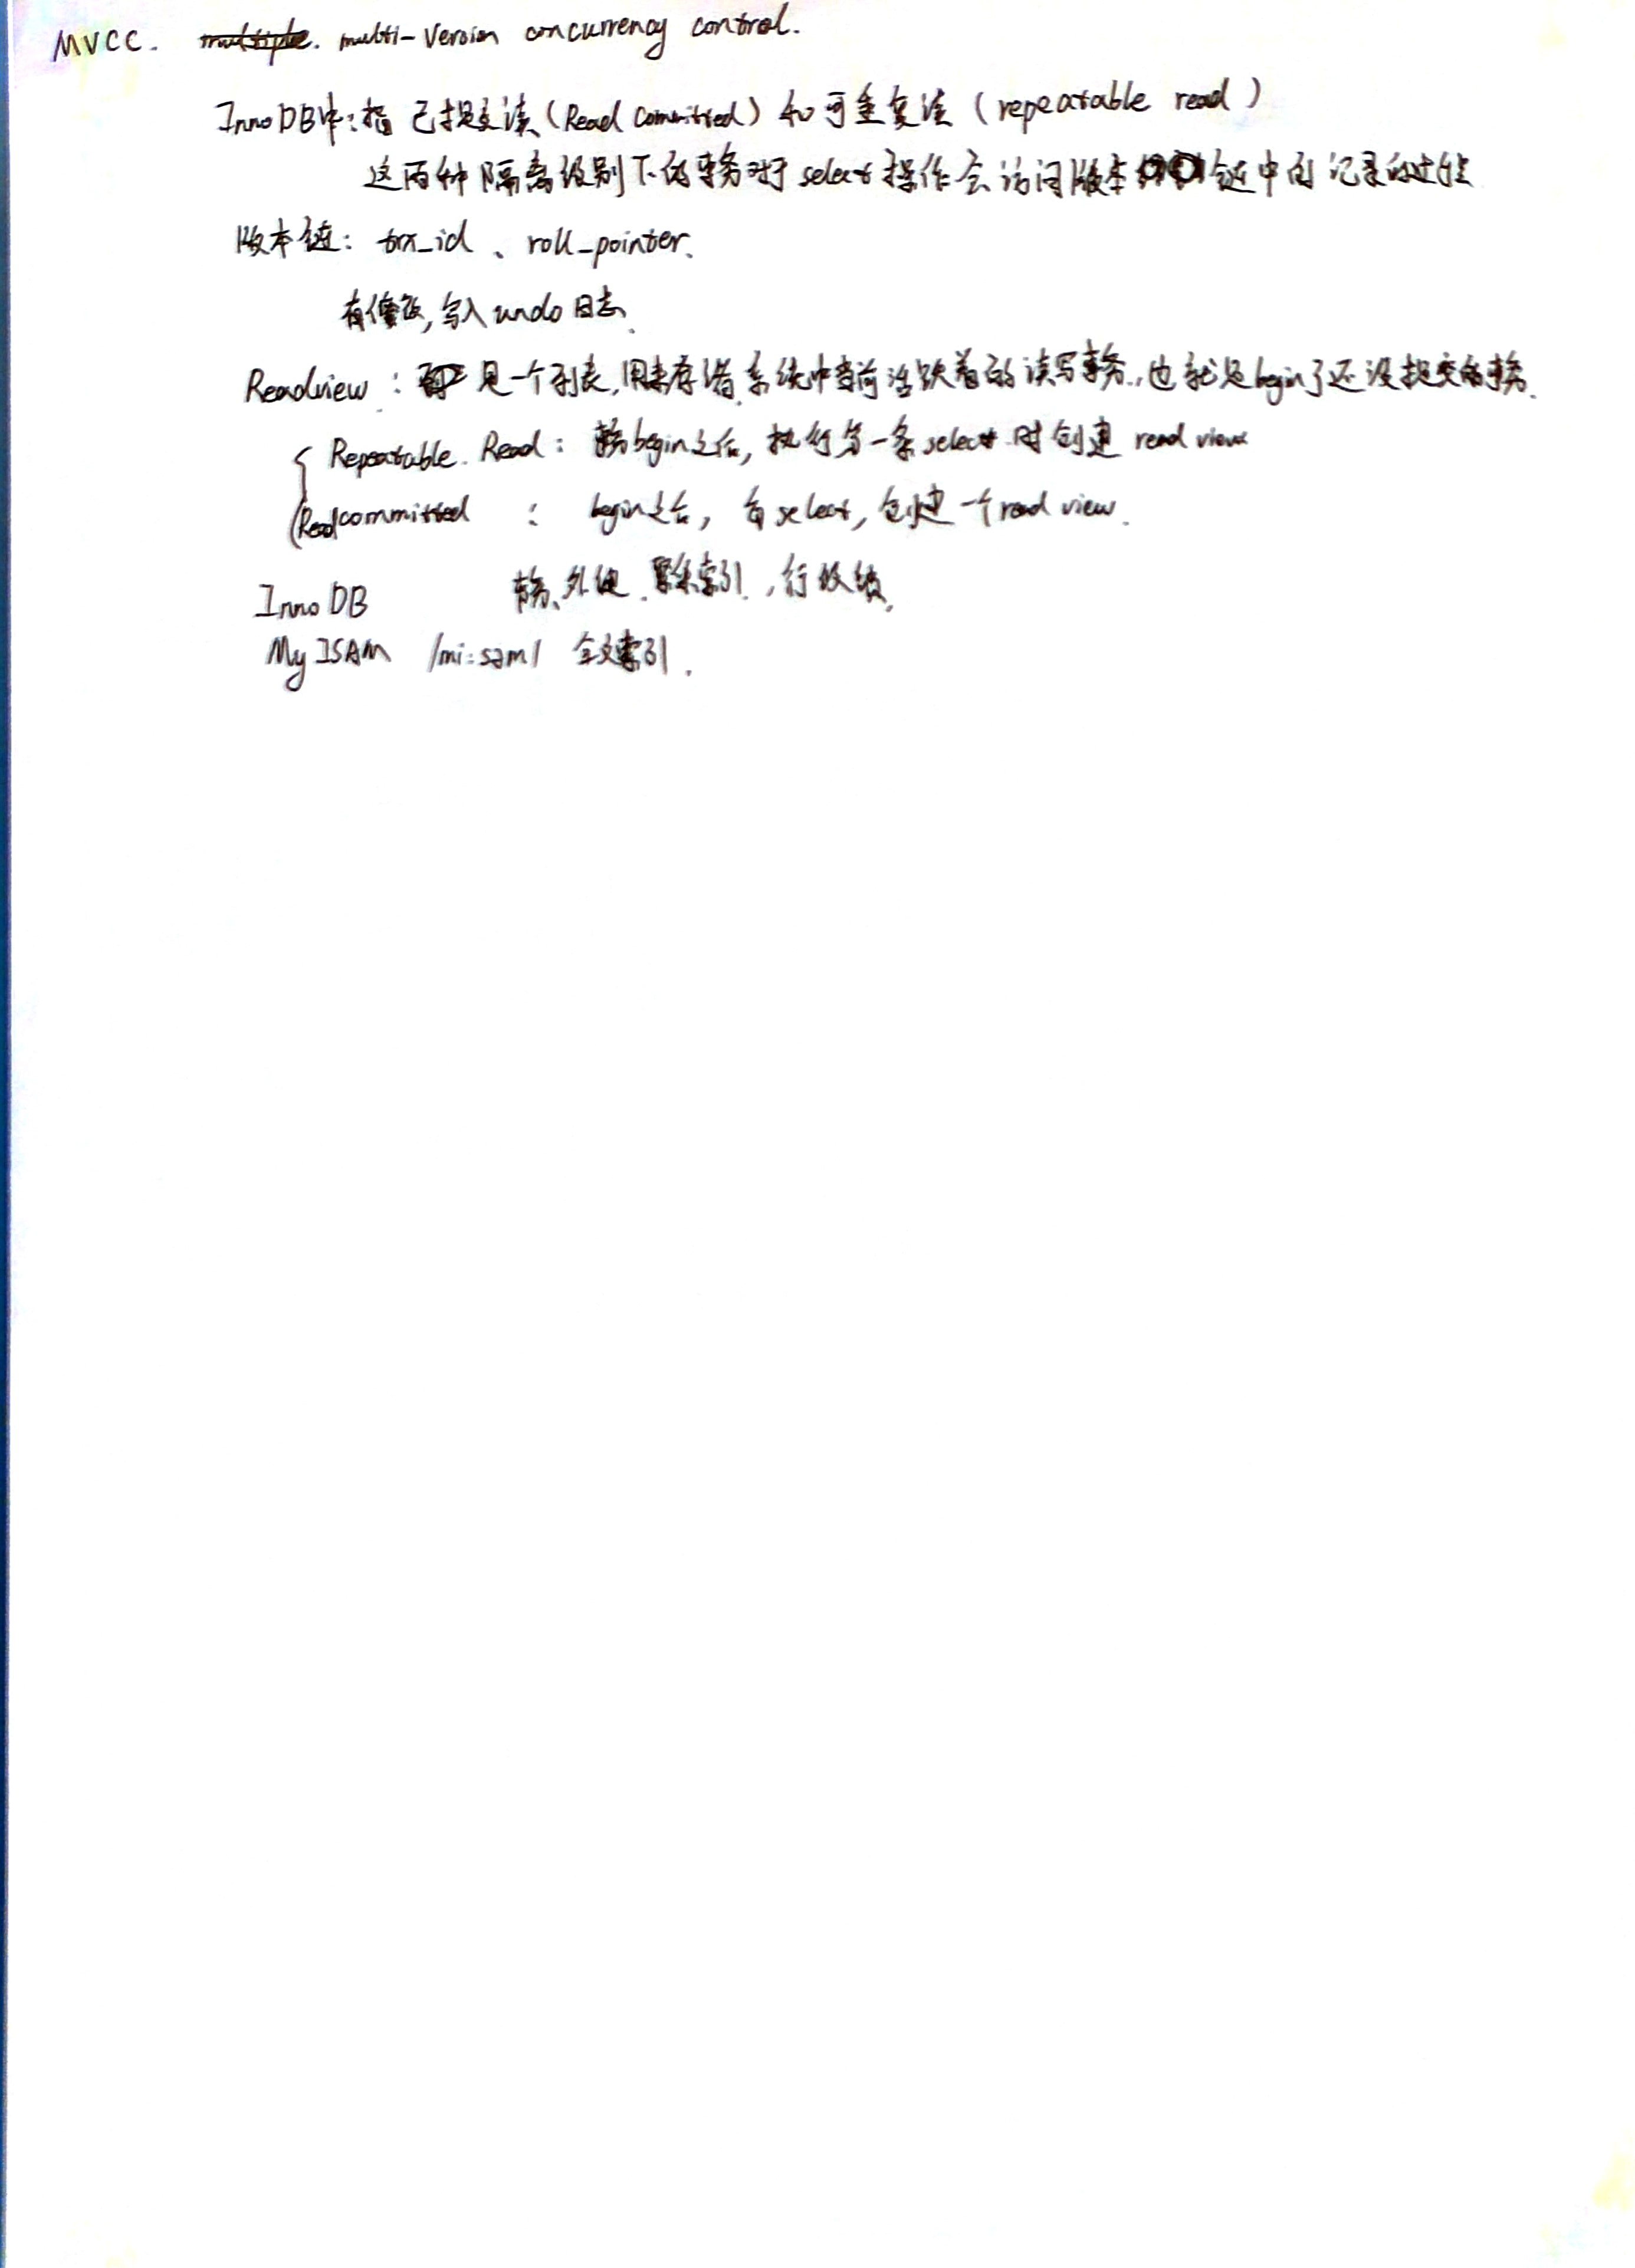 MVCC. multi-Version concurrency control.
InnoDB中:指已提交读(Read Committed)和可重复读(repeatable read)
这两种隔离级别下的事务对于select操作会访问版本链中的记录的过程
版本链: trx_id、roll_pointer.
有修改,写入undo日志.
Readview: 是一个列表,用来存储系统中当前活跃着的读写事务,也就是begin了还没提交的事务.
Repeatable Read: 事务begin之后,执行第一条select时创建 read view
Read committed : begin之后, 每select, 创建一个read view.
InnoDB 事务、外键、聚集索引,行级锁,
MyISAM /mi:səml 全文索引.